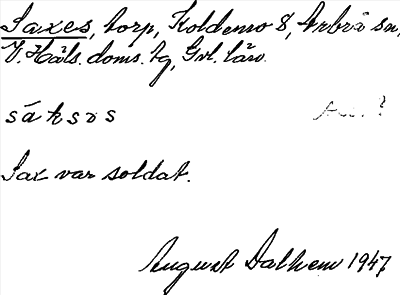 Saxes, torp, Koldemo 8, Arbrå sn,
V. Häls. doms. tg, Gvl. län.
sáksɘs
Sax var soldat.
August Dalhem 1947